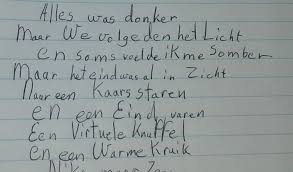 Alles was donker
Maar We volgeden het Licht
en soms voelde ik me Somber
Maar het eind was al in Zicht
Naar een Kaars staren
en een Eind varen
Een Virtuele Knuffel
en een Warme Kruik